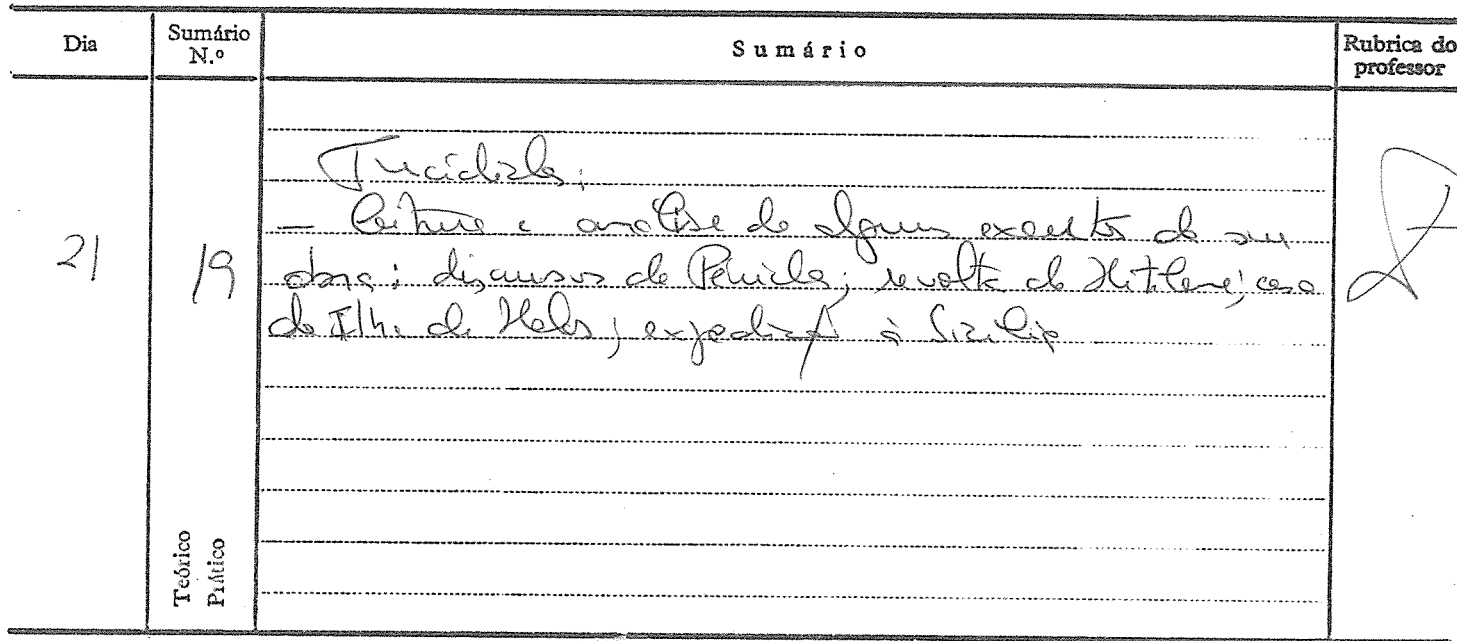 Dia
Sumário N.º
Sumário
Rubrica do professor
21
19
Tucídides:
– leitura e análise de alguns excertos da sua
obra: discursos de Péricles; revolta de Mitilene; caso
da Ilha de Melos; expedição à Sicília
Teórico
Prático